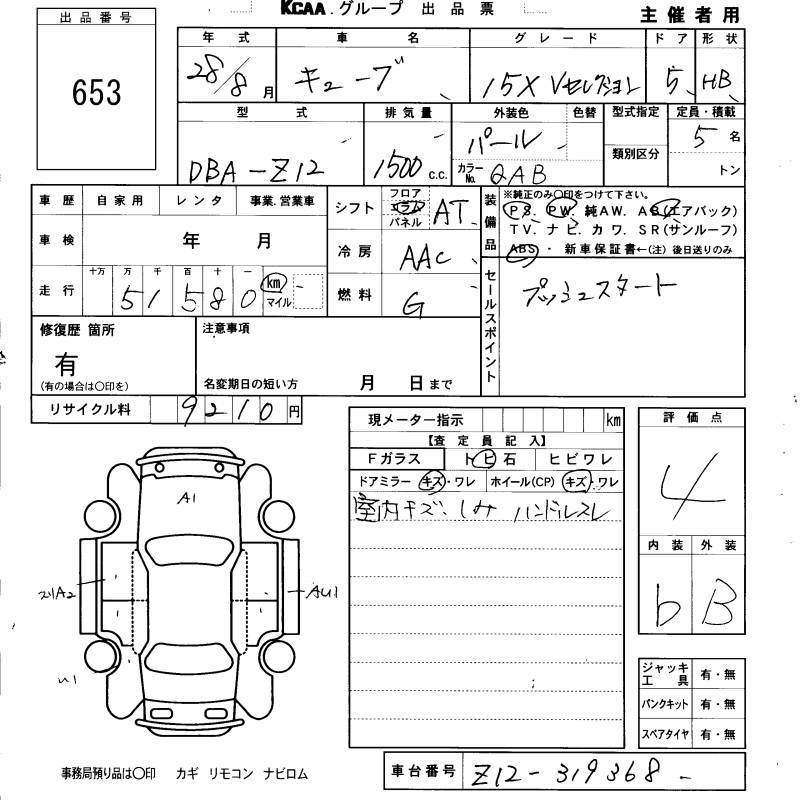 出品番号
653
KCAA.グループ 出品票
主催者用
年式 車名 グレード ドア 形状
28/8月 キューブ 15X Vセレクション 5 HB
型式 排気量 外装色 色替 型式指定 定員・積載
DBA-Z12 1500 c.c. パール 類別区分 5名
カラーNo. QAB トン
車歴 自家用 レンタ 事業.営業車
車検 年 月
走行 十万 万 千 百 十 一
51580 km マイル
シフト フロア コラム パネル AT
冷房 AAC
燃料 G
装備品
※純正のみ〇印をつけて下さい。
PS. PW. 純AW. AB(エアバック)
TV. ナビ. カワ. SR(サンルーフ)
ABS・新車保証書←(注)後日送りのみ
セールスポイント
プッシュスタート
修復歴 箇所
有
(有の場合は〇印を)
注意事項
名変期日の短い方 月 日まで
リサイクル料 9210円
現メーター指示 km
【査定員記入】
Fガラス トビ石 ヒビワレ
ドアミラー キズ・ワレ ホイール(CP) キズ・ワレ
室内キズ、しみ ハンドルスレ
評価点
4
内装 外装
b B
A1
AU1
U1
ジャッキ工具 有・無
パンクキット 有・無
スペアタイヤ 有・無
事務局預り品は〇印 カギ リモコン ナビロム
車台番号 Z12-319368